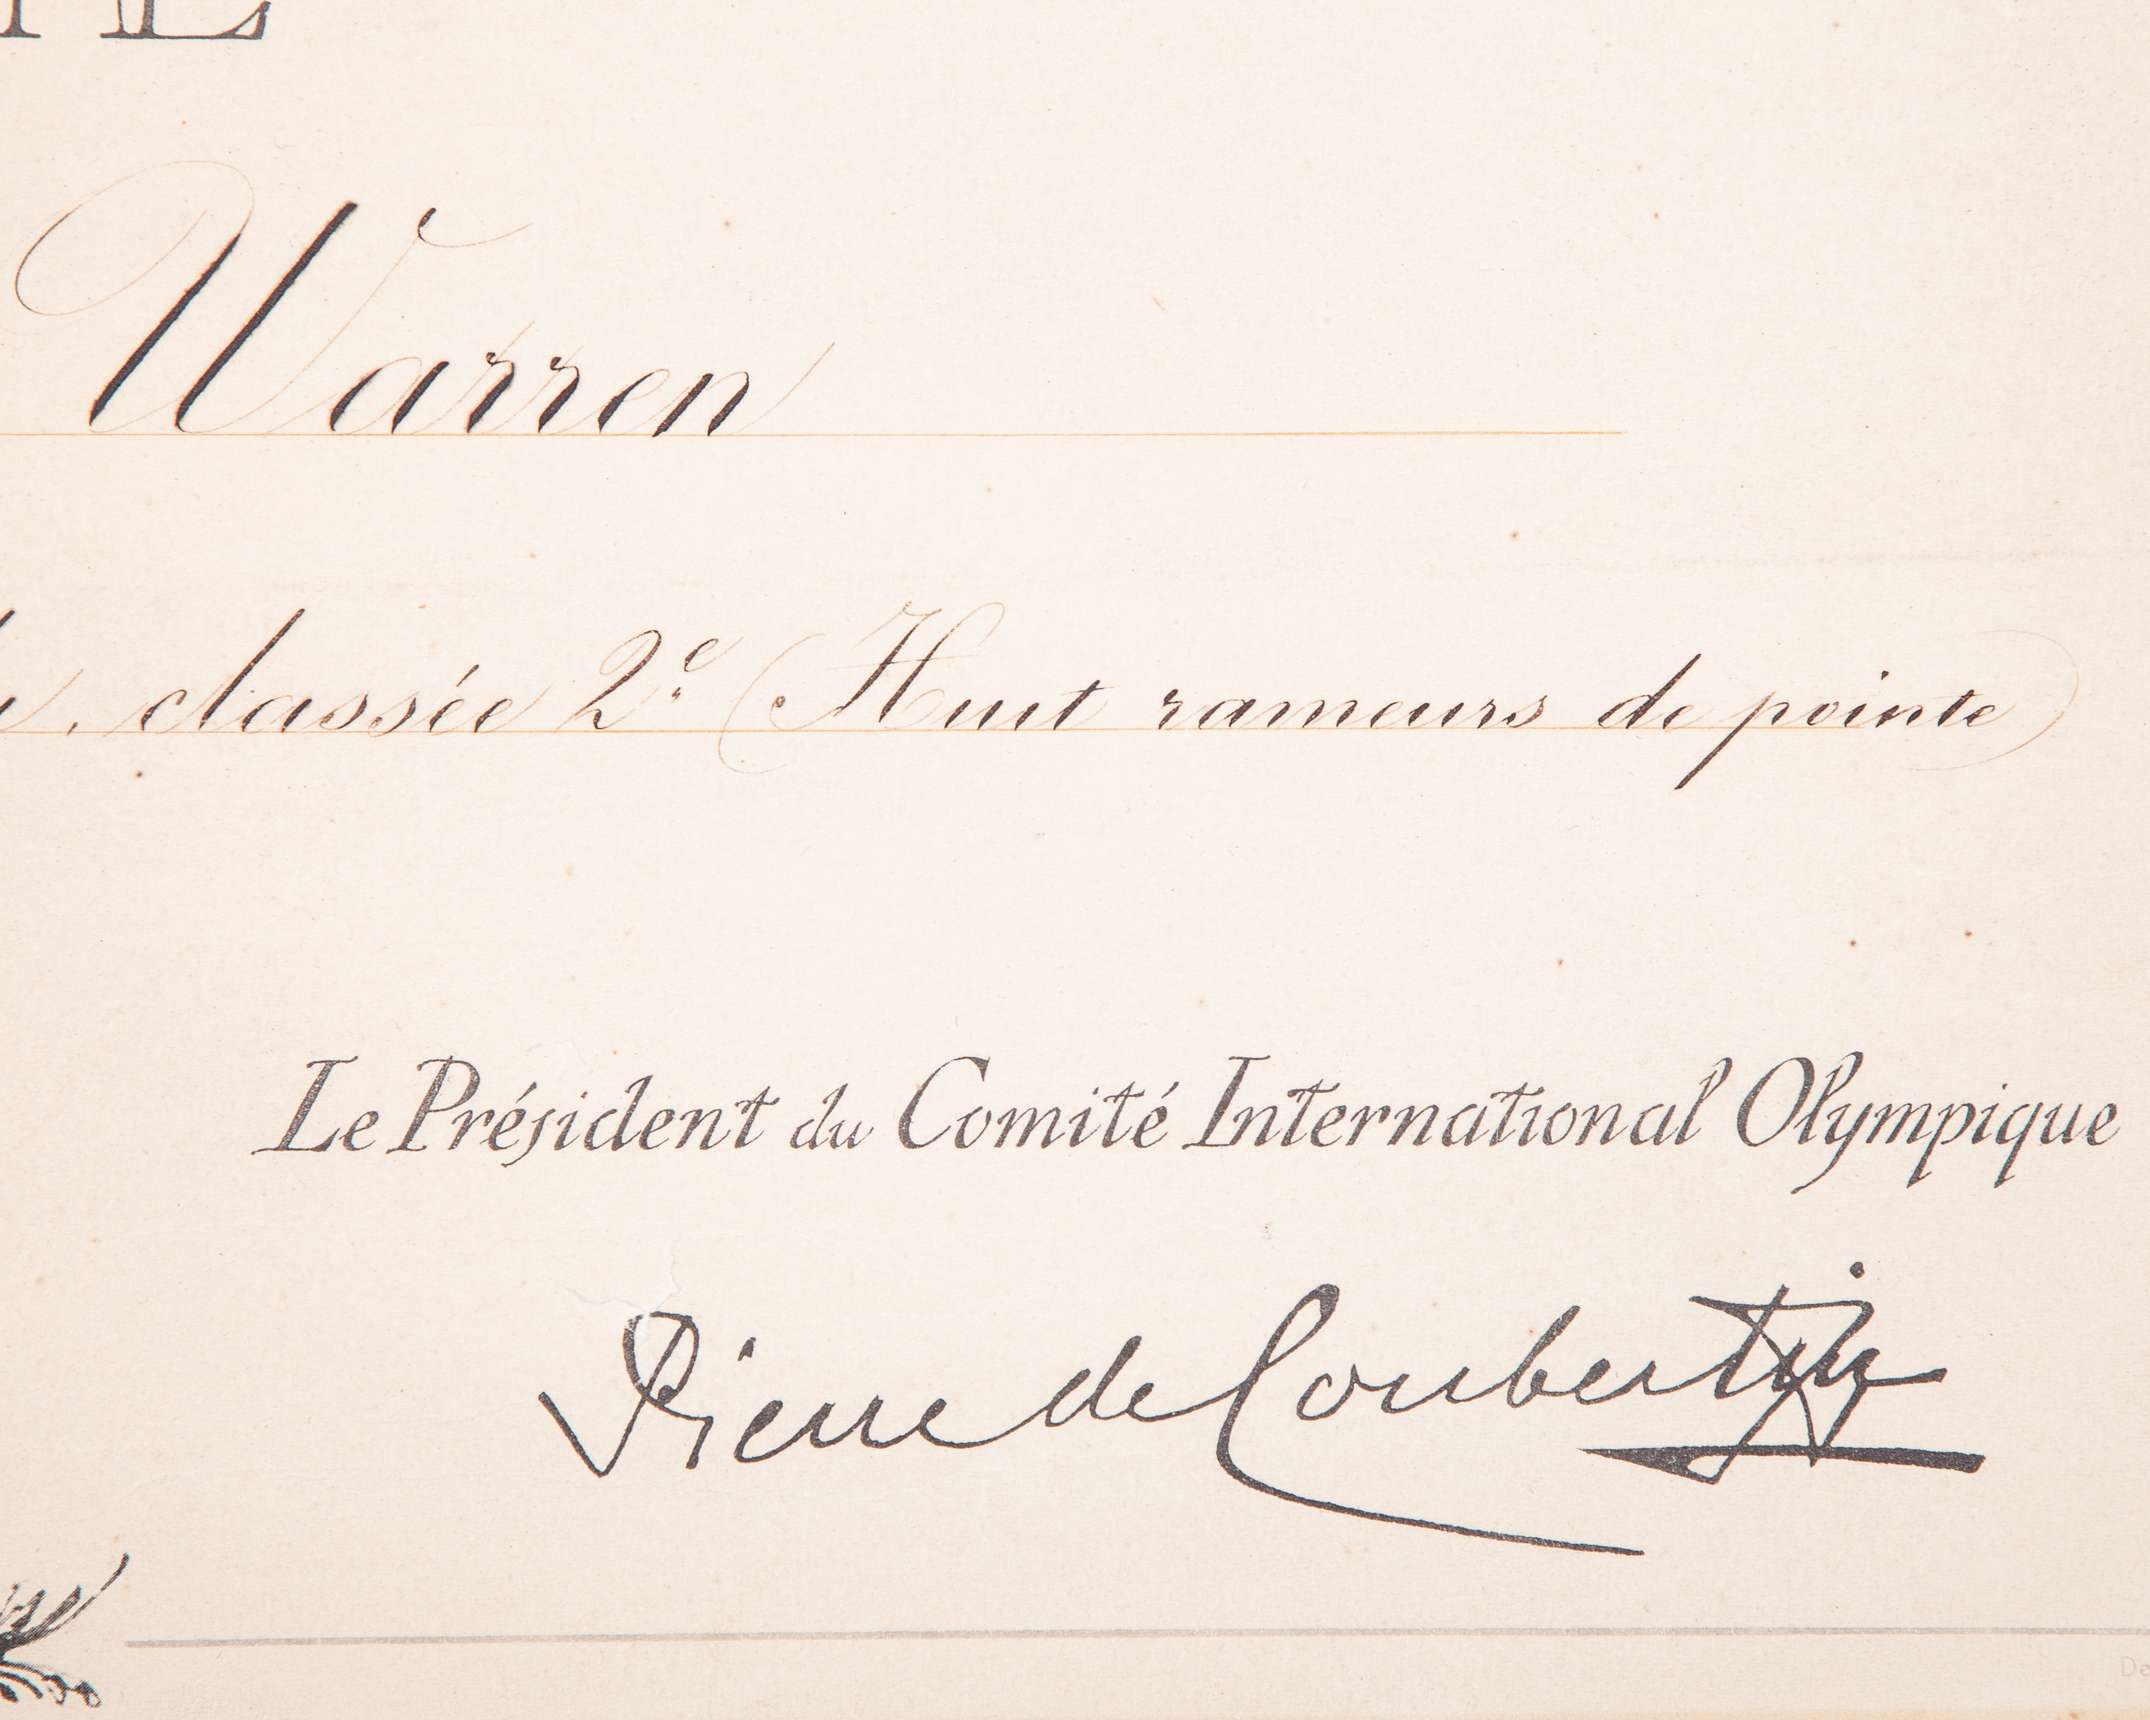 Warren
classée 2e (Huit rameurs de pointe)
Le Président du Comité International Olympique
Pierre de Coubertin